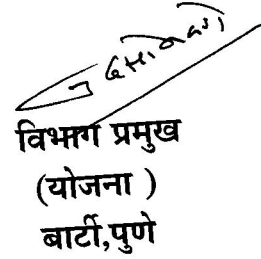 विभाग प्रमुख
(योजना )
बार्टी,पुणे